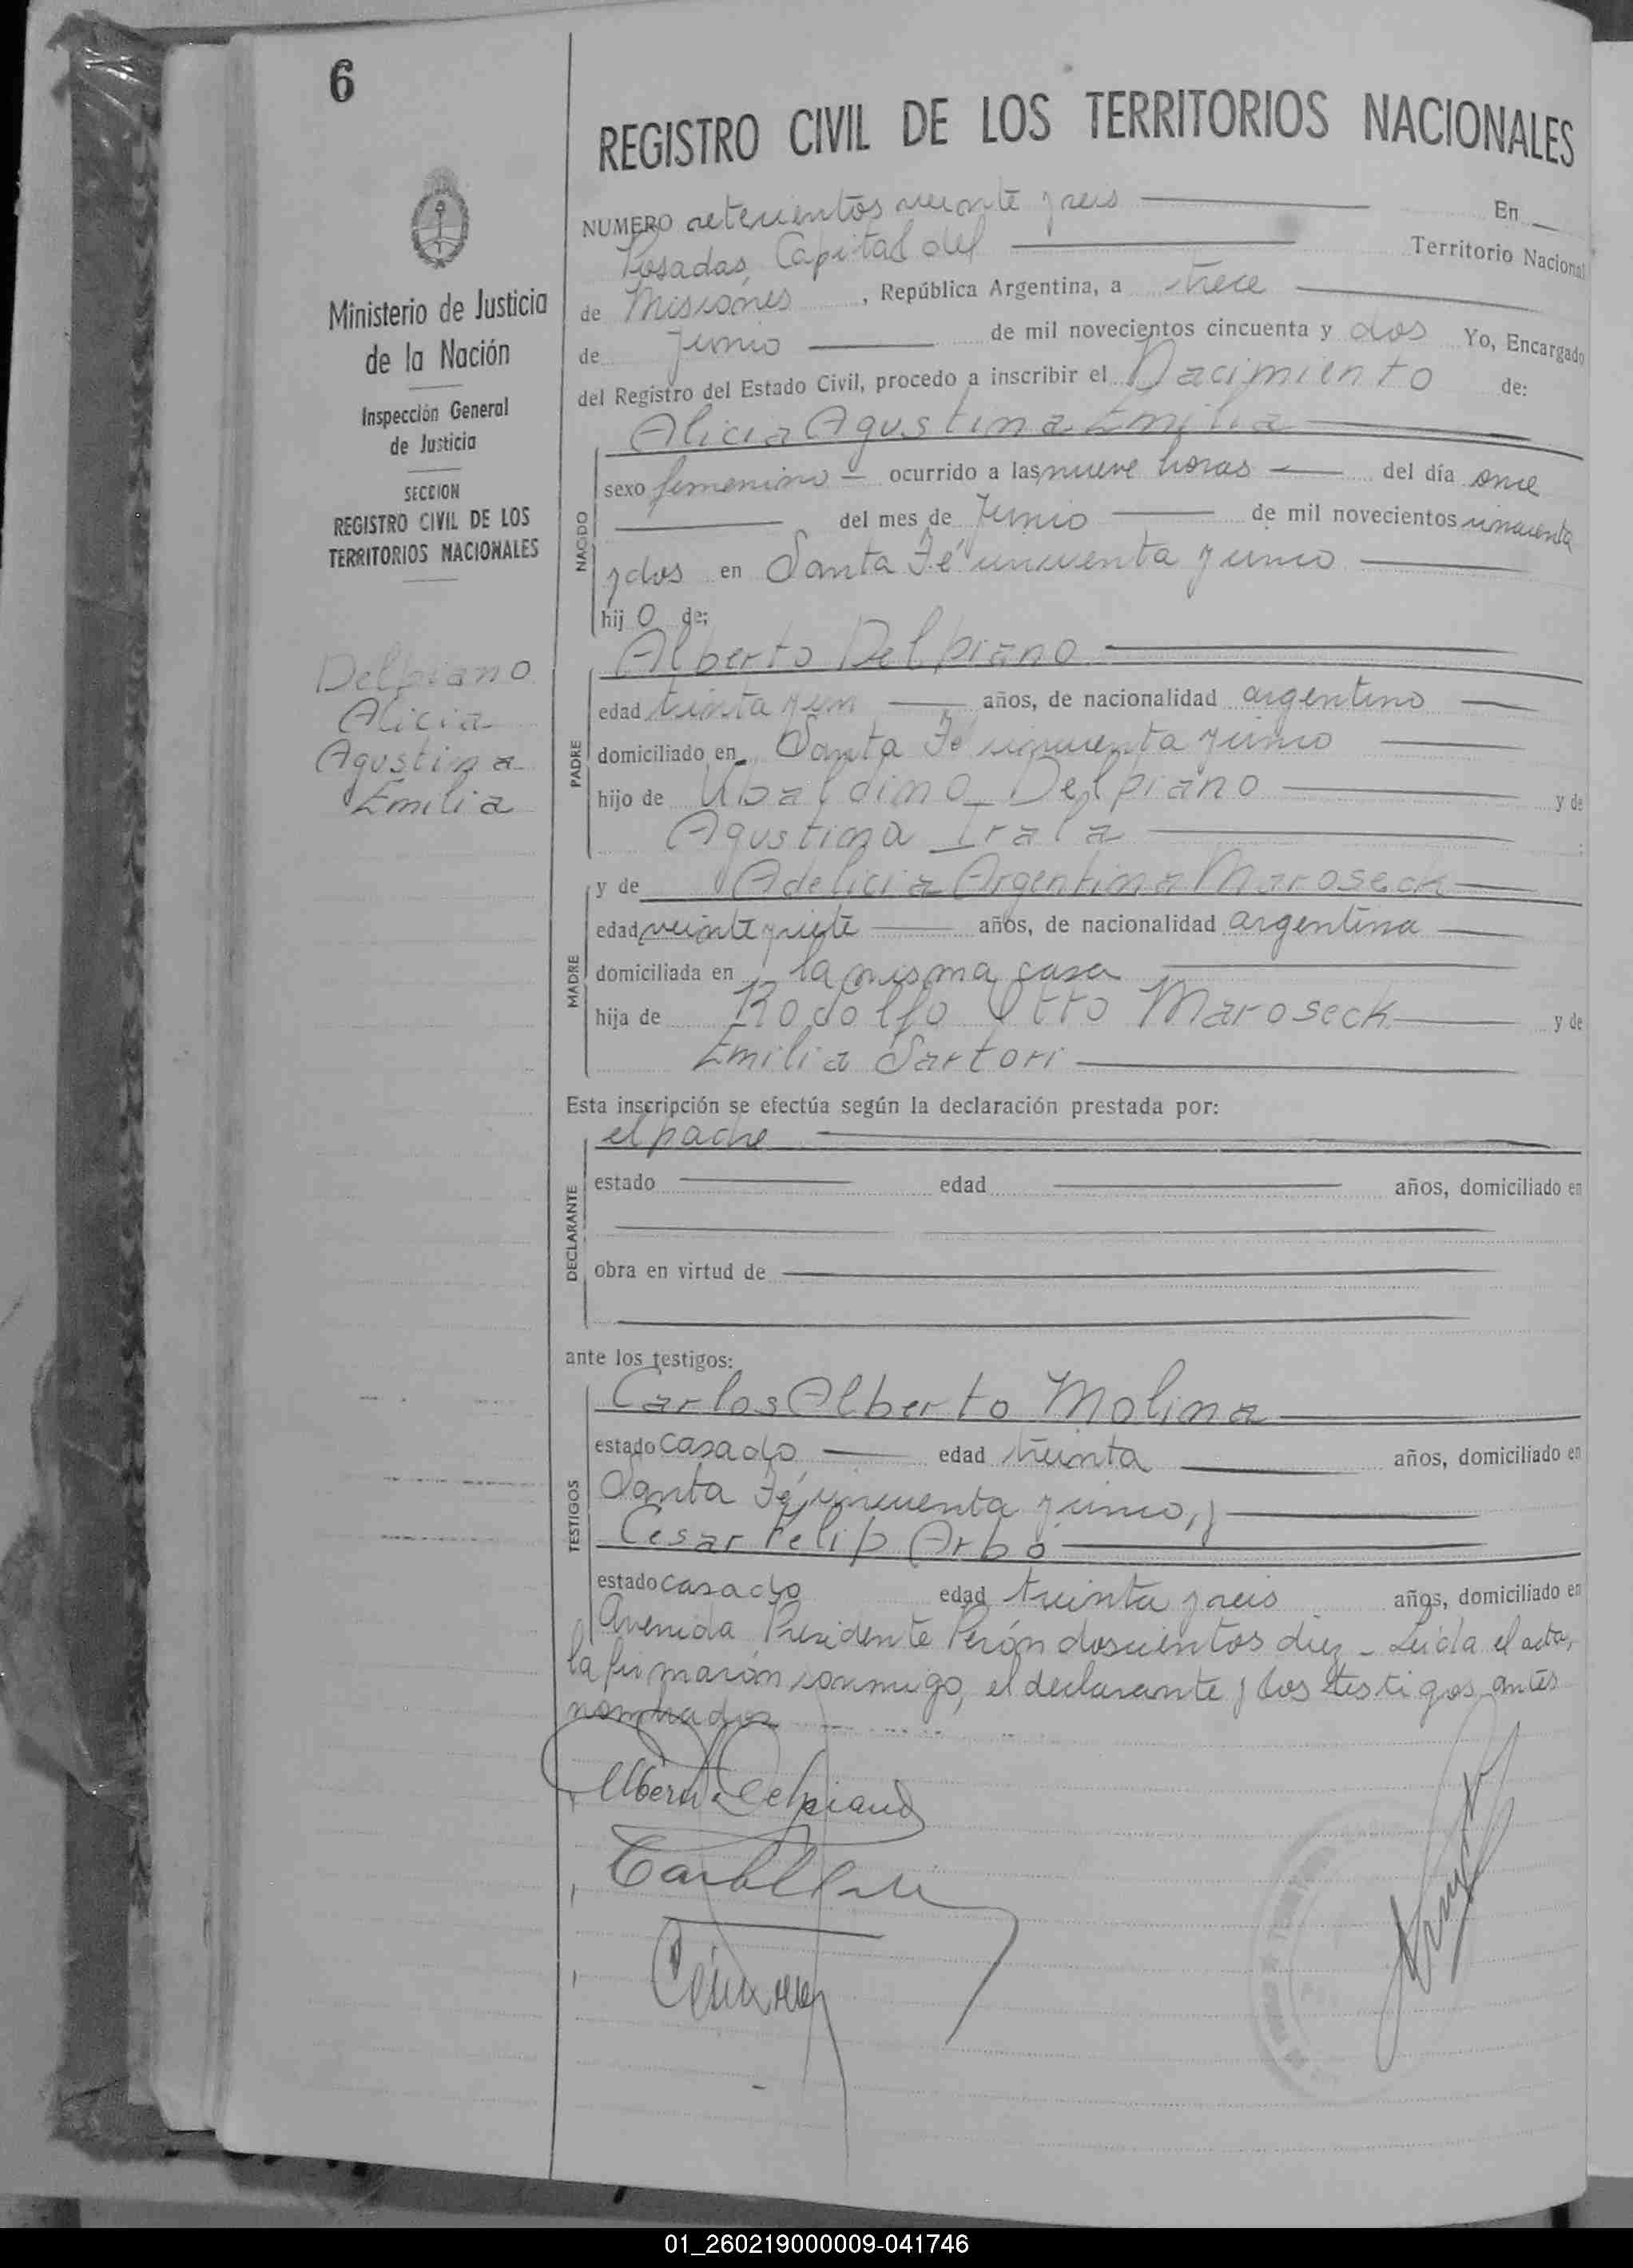 6
REGISTRO CIVIL DE LOS TERRITORIOS NACIONALES
Ministerio de Justicia
de la Nación
Inspección General
de Justicia
SECCION
REGISTRO CIVIL DE LOS
TERRITORIOS NACIONALES
Delpiano
Alicia
Agustina
Emilia
NUMERO setecientos veinte y seis En
Posadas, Capital del Territorio Nacional
de Misiones, República Argentina, a trece
de Junio de mil novecientos cincuenta y dos Yo, Encargado
del Registro del Estado Civil, procedo a inscribir el Nacimiento de:
Alicia Agustina Emilia
NACIDO
sexo femenino ocurrido a las nueve horas del día once
del mes de Junio de mil novecientos cincuenta
y dos en Santa Fé cincuenta y cinco
hij o de:
Alberto Delpiano
PADRE
edad treinta y un años, de nacionalidad argentino
domiciliado en Santa Fé cincuenta y cinco
hijo de Ubaldino Delpiano y de
Agustina Irala
MADRE
y de Adelicia Argentina Maroseck
edad veinte y siete años, de nacionalidad argentina
domiciliada en la misma casa
hija de Rodolfo Otto Maroseck y de
Emilia Sartori
Esta inscripción se efectúa según la declaración prestada por:
el padre
DECLARANTE
estado edad años, domiciliado en
obra en virtud de
ante los testigos:
Carlos Alberto Molina
TESTIGOS
estado casado edad treinta años, domiciliado en
Santa Fé, cincuenta y cinco, y
Cesar Felip Arbó
estado casado edad treinta y seis años, domiciliado en
Avenida Presidente Perón doscientos diez - Leida el acta,
la firmarón conmigo, el declarante y los testigos antes
nombrados
Alberto Delpiano
01_260219000009-041746